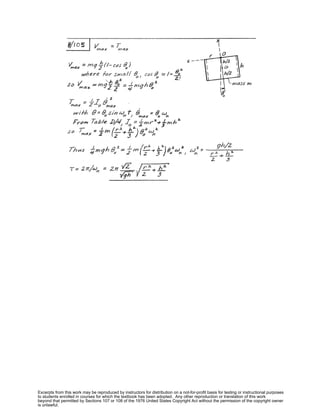 8/105 V_max = T_max
V_max = mg h/2 (1 - cos θ_o)
where for small θ_o, cos θ_o = 1 - θ_o²/2!
so V_max = mg h/2 θ_o²/2 = 1/4 mgh θ_o²
T_max = 1/2 I_o θ̇²_max
with θ = θ_o sin ω_n t, θ̇_max = θ_o ω_n
From Table D/4, I_o = 1/2 mr² + 1/3 mh²
so T_max = 1/2 m (r²/2 + h²/3) θ_o² ω_n²
Thus 1/4 mgh θ_o² = 1/2 m (r²/2 + h²/3) θ_o² ω_n², ω_n² = (gh/2)/(r²/2 + h²/3)
τ = 2π/ω_n = 2π √2/√gh √(r²/2 + h²/3)
r
h/2
G
h/2
h
mass m
θ_o
Excerpts from this work may be reproduced by instructors for distribution on a not-for-profit basis for testing or instructional purposes
to students enrolled in courses for which the textbook has been adopted. Any other reproduction or translation of this work
beyond that permitted by Sections 107 or 108 of the 1976 United States Copyright Act without the permission of the copyright owner
is unlawful.